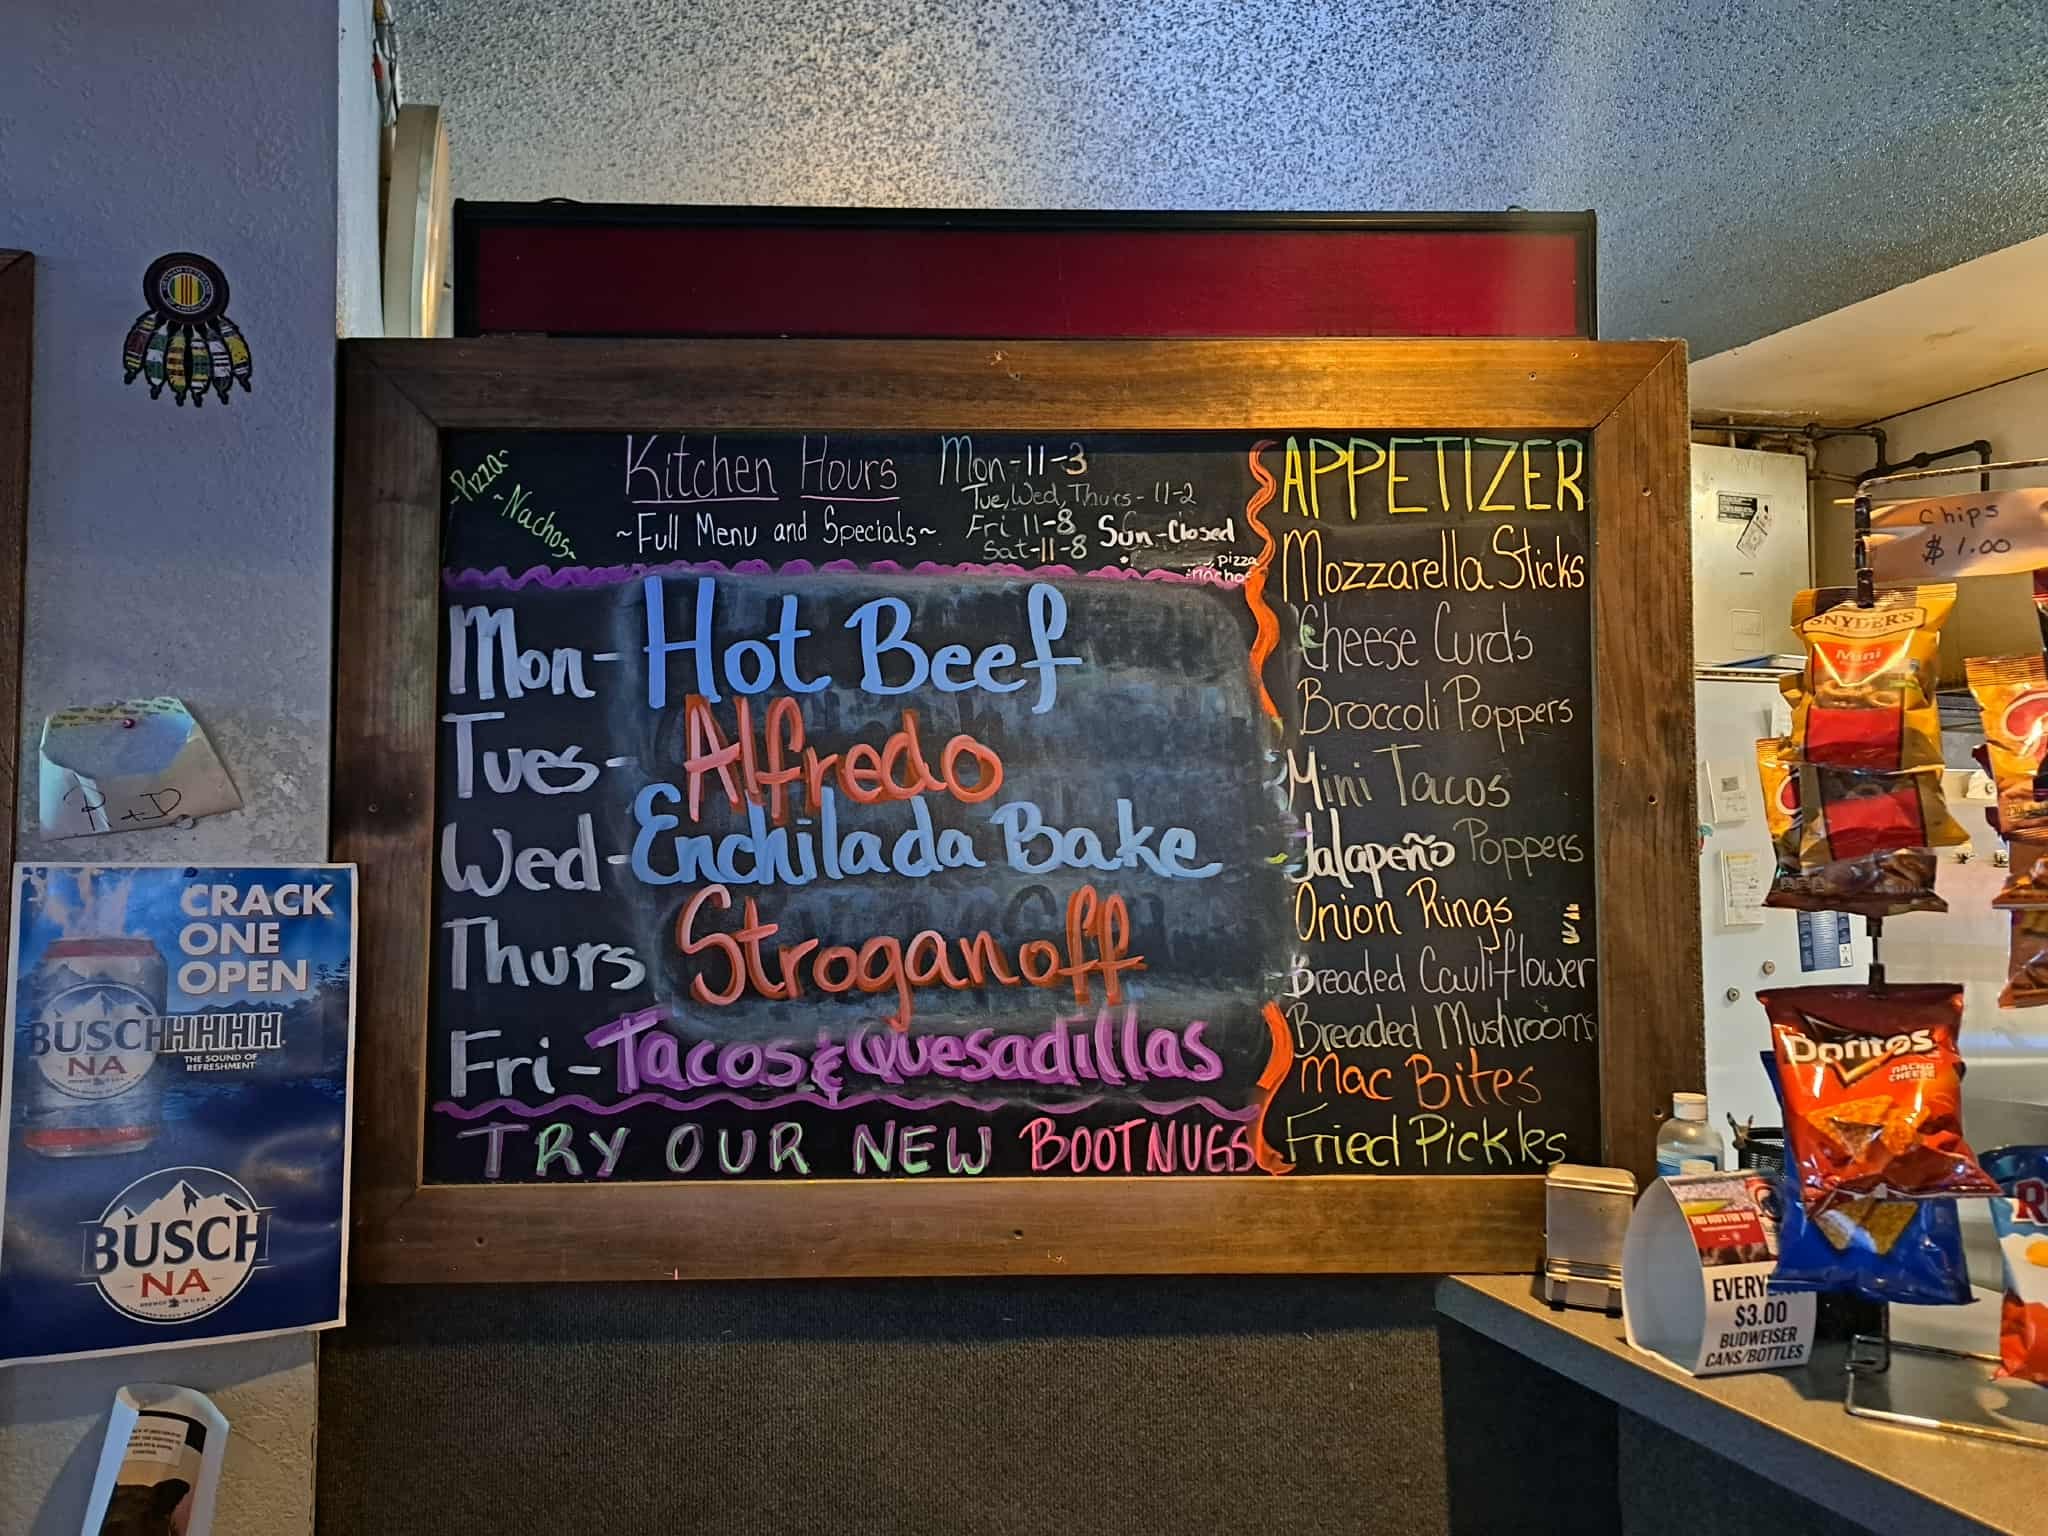 ~Pizza~
~Nachos~
Kitchen Hours
~Full Menu and Specials~
Mon-11-3
Tue, Wed, Thurs-11-2
Fri 11-8
Sat-11-8
Sun-Closed
pizza
nachos
Mon- Hot Beef
Tues- Alfredo
Wed- Enchilada Bake
Thurs Stroganoff
Fri- Tacos & Quesadillas
TRY OUR NEW BOOTNUGS
APPETIZER
Mozzarella Sticks
Cheese Curds
Broccoli Poppers
Mini Tacos
Jalapeño Poppers
Onion Rings
Breaded Cauliflower
Breaded Mushrooms
Mac Bites
Fried Pickles
R+D
CRACK
ONE
OPEN
BUSCHHHHH
NA
THE SOUND OF
REFRESHMENT
BUSCH
NA
Chips
$1.00
SNYDER'S
Mini
Doritos
NACHO
CHEESE
THIS BUD'S FOR YOU
$3.00
BUDWEISER
CANS/BOTTLES